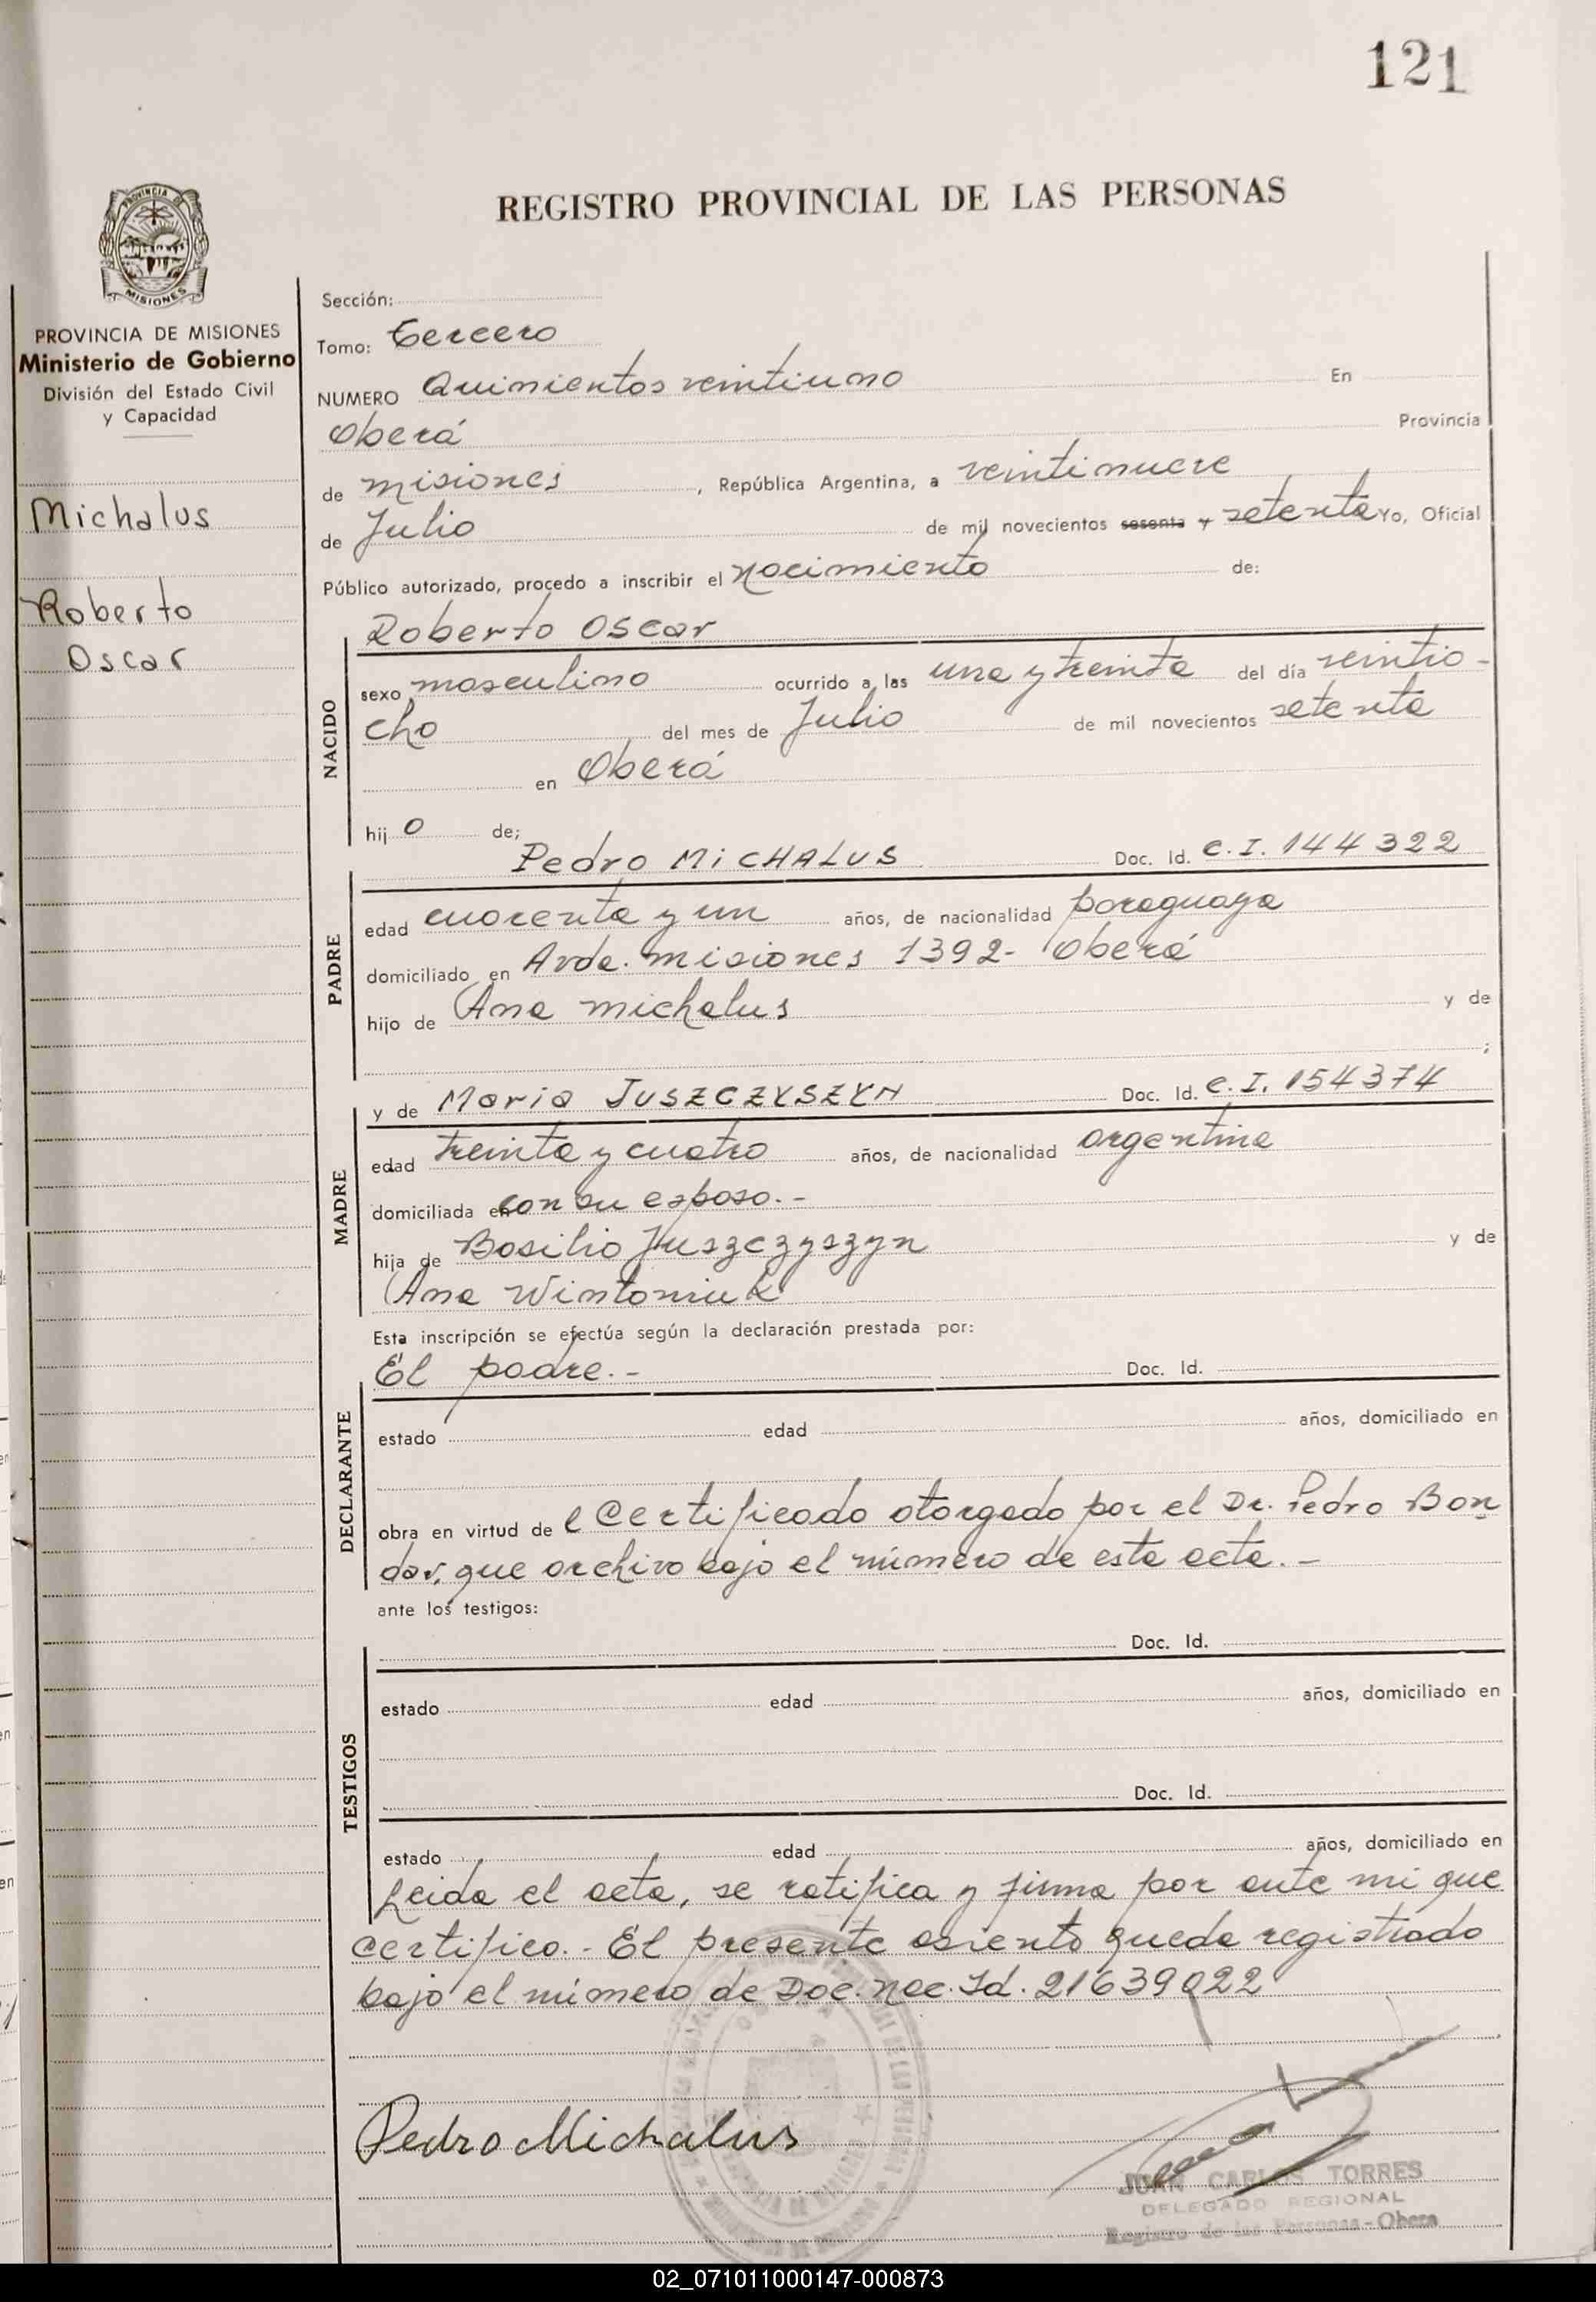 121
REGISTRO PROVINCIAL DE LAS PERSONAS
PROVINCIA DE
MISIONES
PROVINCIA DE MISIONES
Ministerio de Gobierno
División del Estado Civil
y Capacidad
Michalus
Roberto
Oscar
Sección:
Tomo: tercero
NUMERO Quinientos veintiuno En
Oberá Provincia
de misiones, República Argentina, a veintinueve
de Julio de mil novecientos sesenta y setenta Yo, Oficial
Público autorizado, procedo a inscribir el nacimiento de:
Roberto Oscar
NACIDO
sexo masculino ocurrido a las una y treinta del día veintio-
cho del mes de Julio de mil novecientos setenta
en Oberá
hijo de;
Pedro MICHALUS Doc. Id. C.I. 144322
PADRE
edad cuarenta y un años, de nacionalidad paraguaya
domiciliado en Avda. misiones 1392- Oberá
hijo de Ana michalus y de
;
y de Maria JUSZCZYSZYN Doc. Id. C.I. 154374
MADRE
edad treinta y cuatro años, de nacionalidad argentina
domiciliada en con su esposo.-
hija de Basilio Juszczyszyn y de
Ana Wintoniuk
Esta inscripción se efectúa según la declaración prestada por:
El padre.- Doc. Id.
DECLARANTE
estado edad años, domiciliado en
obra en virtud de l Certificado otorgado por el Dr. Pedro Bon
dar, que archivo bajo el número de esta acta.-
ante los testigos:
Doc. Id.
TESTIGOS
estado edad años, domiciliado en
Doc. Id.
estado edad años, domiciliado en
Leida el acta, se ratifica y firma por ante mi que
certifico.- El presente asiento queda registrado
bajo el número de Doc. Nac. Id. 21639022
Pedro Michalus
JUAN CARLOS TORRES
DELEGADO REGIONAL
Registro de las Personas - Obera
02_071011000147-000873